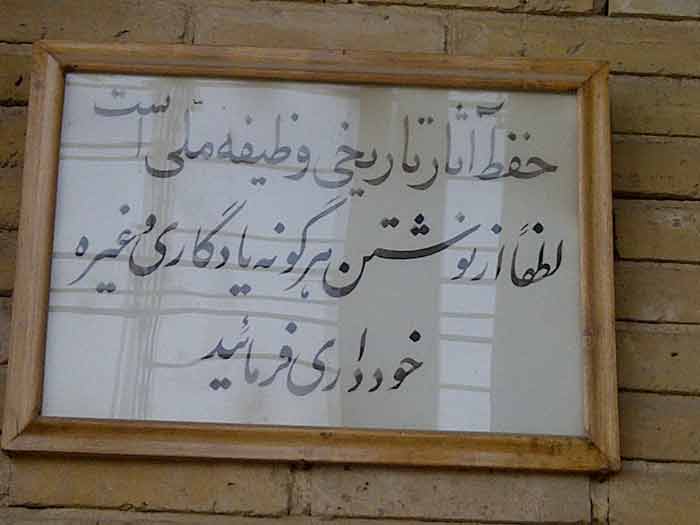 حفظ آثار تاریخی وظیفه ملّی است
لطفاً از نوشتن هرگونه یادگاری و غیره
خودداری فرمائید